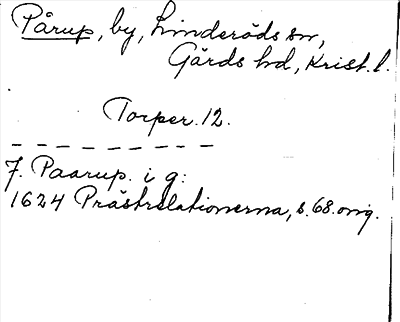 Pårup, by, Linderöds sn,
Gärds hd, Krist. l.
Torper. 12.
7. Paarup. i g:
1624 Prästrelationerna, s. 68. orig.